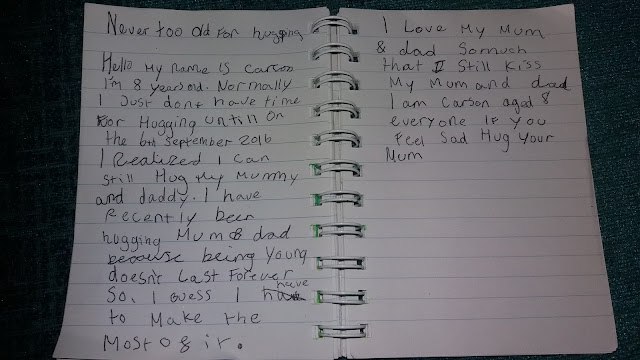 Never too old for hugging
Hello My name is Carson
I'm 8 years old. Normally
I Just dont have time
For Hugging untill On
the 6th September 2016
I Realized I can
Still Hug My Mummy
and daddy. I have
Recently been
hugging Mum & dad
because being Young
doesn't Last Forever
So, I Guess I have
to Make the
Most Of it.
I Love My Mum
& dad So much
that I Still Kiss
My Mum and dad
I am Carson aged 8
everyone IF you
Feel Sad Hug Your
Mum